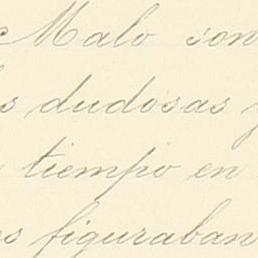 Malo son
s dudosas y
tiempo en
s figuraban